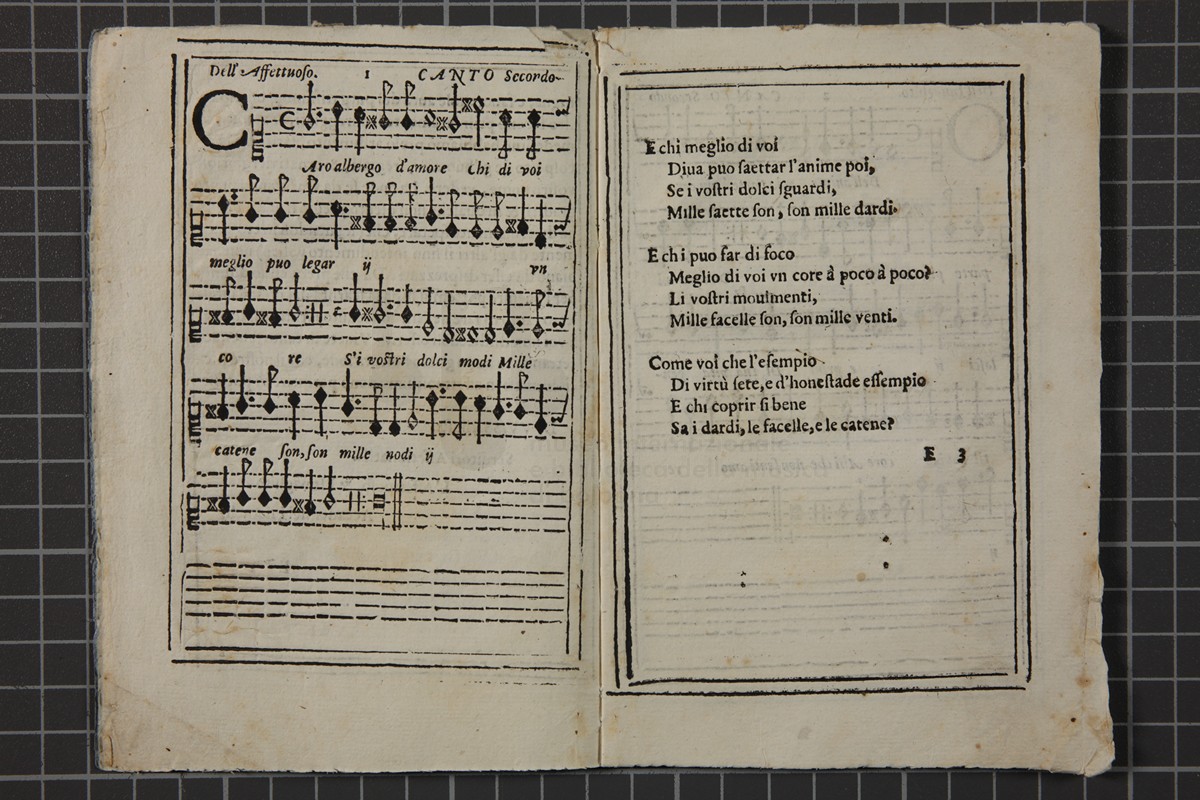 Dell' Affettuoso. 1 CANTO Secordo
C
Aro albergo d'amore Chi di voi
meglio puo legar ij vn
co re S'i voſtri dolci modi Mille
catene ſon, ſon mille nodi ij
E chi meglio di voi
Diua puo ſaettar l'anime poi,
Se i voſtri dolci ſguardi,
Mille ſaette ſon, ſon mille dardi.
E chi puo far di foco
Meglio di voi vn core à poco à poco?
Li voſtri mouimenti,
Mille facelle ſon, ſon mille venti.
Come voi che l'eſempio
Di virtù ſete, e d'honeſtade eſſempio
E chi coprir ſi bene
Sa i dardi, le facelle, e le catene?
E 3